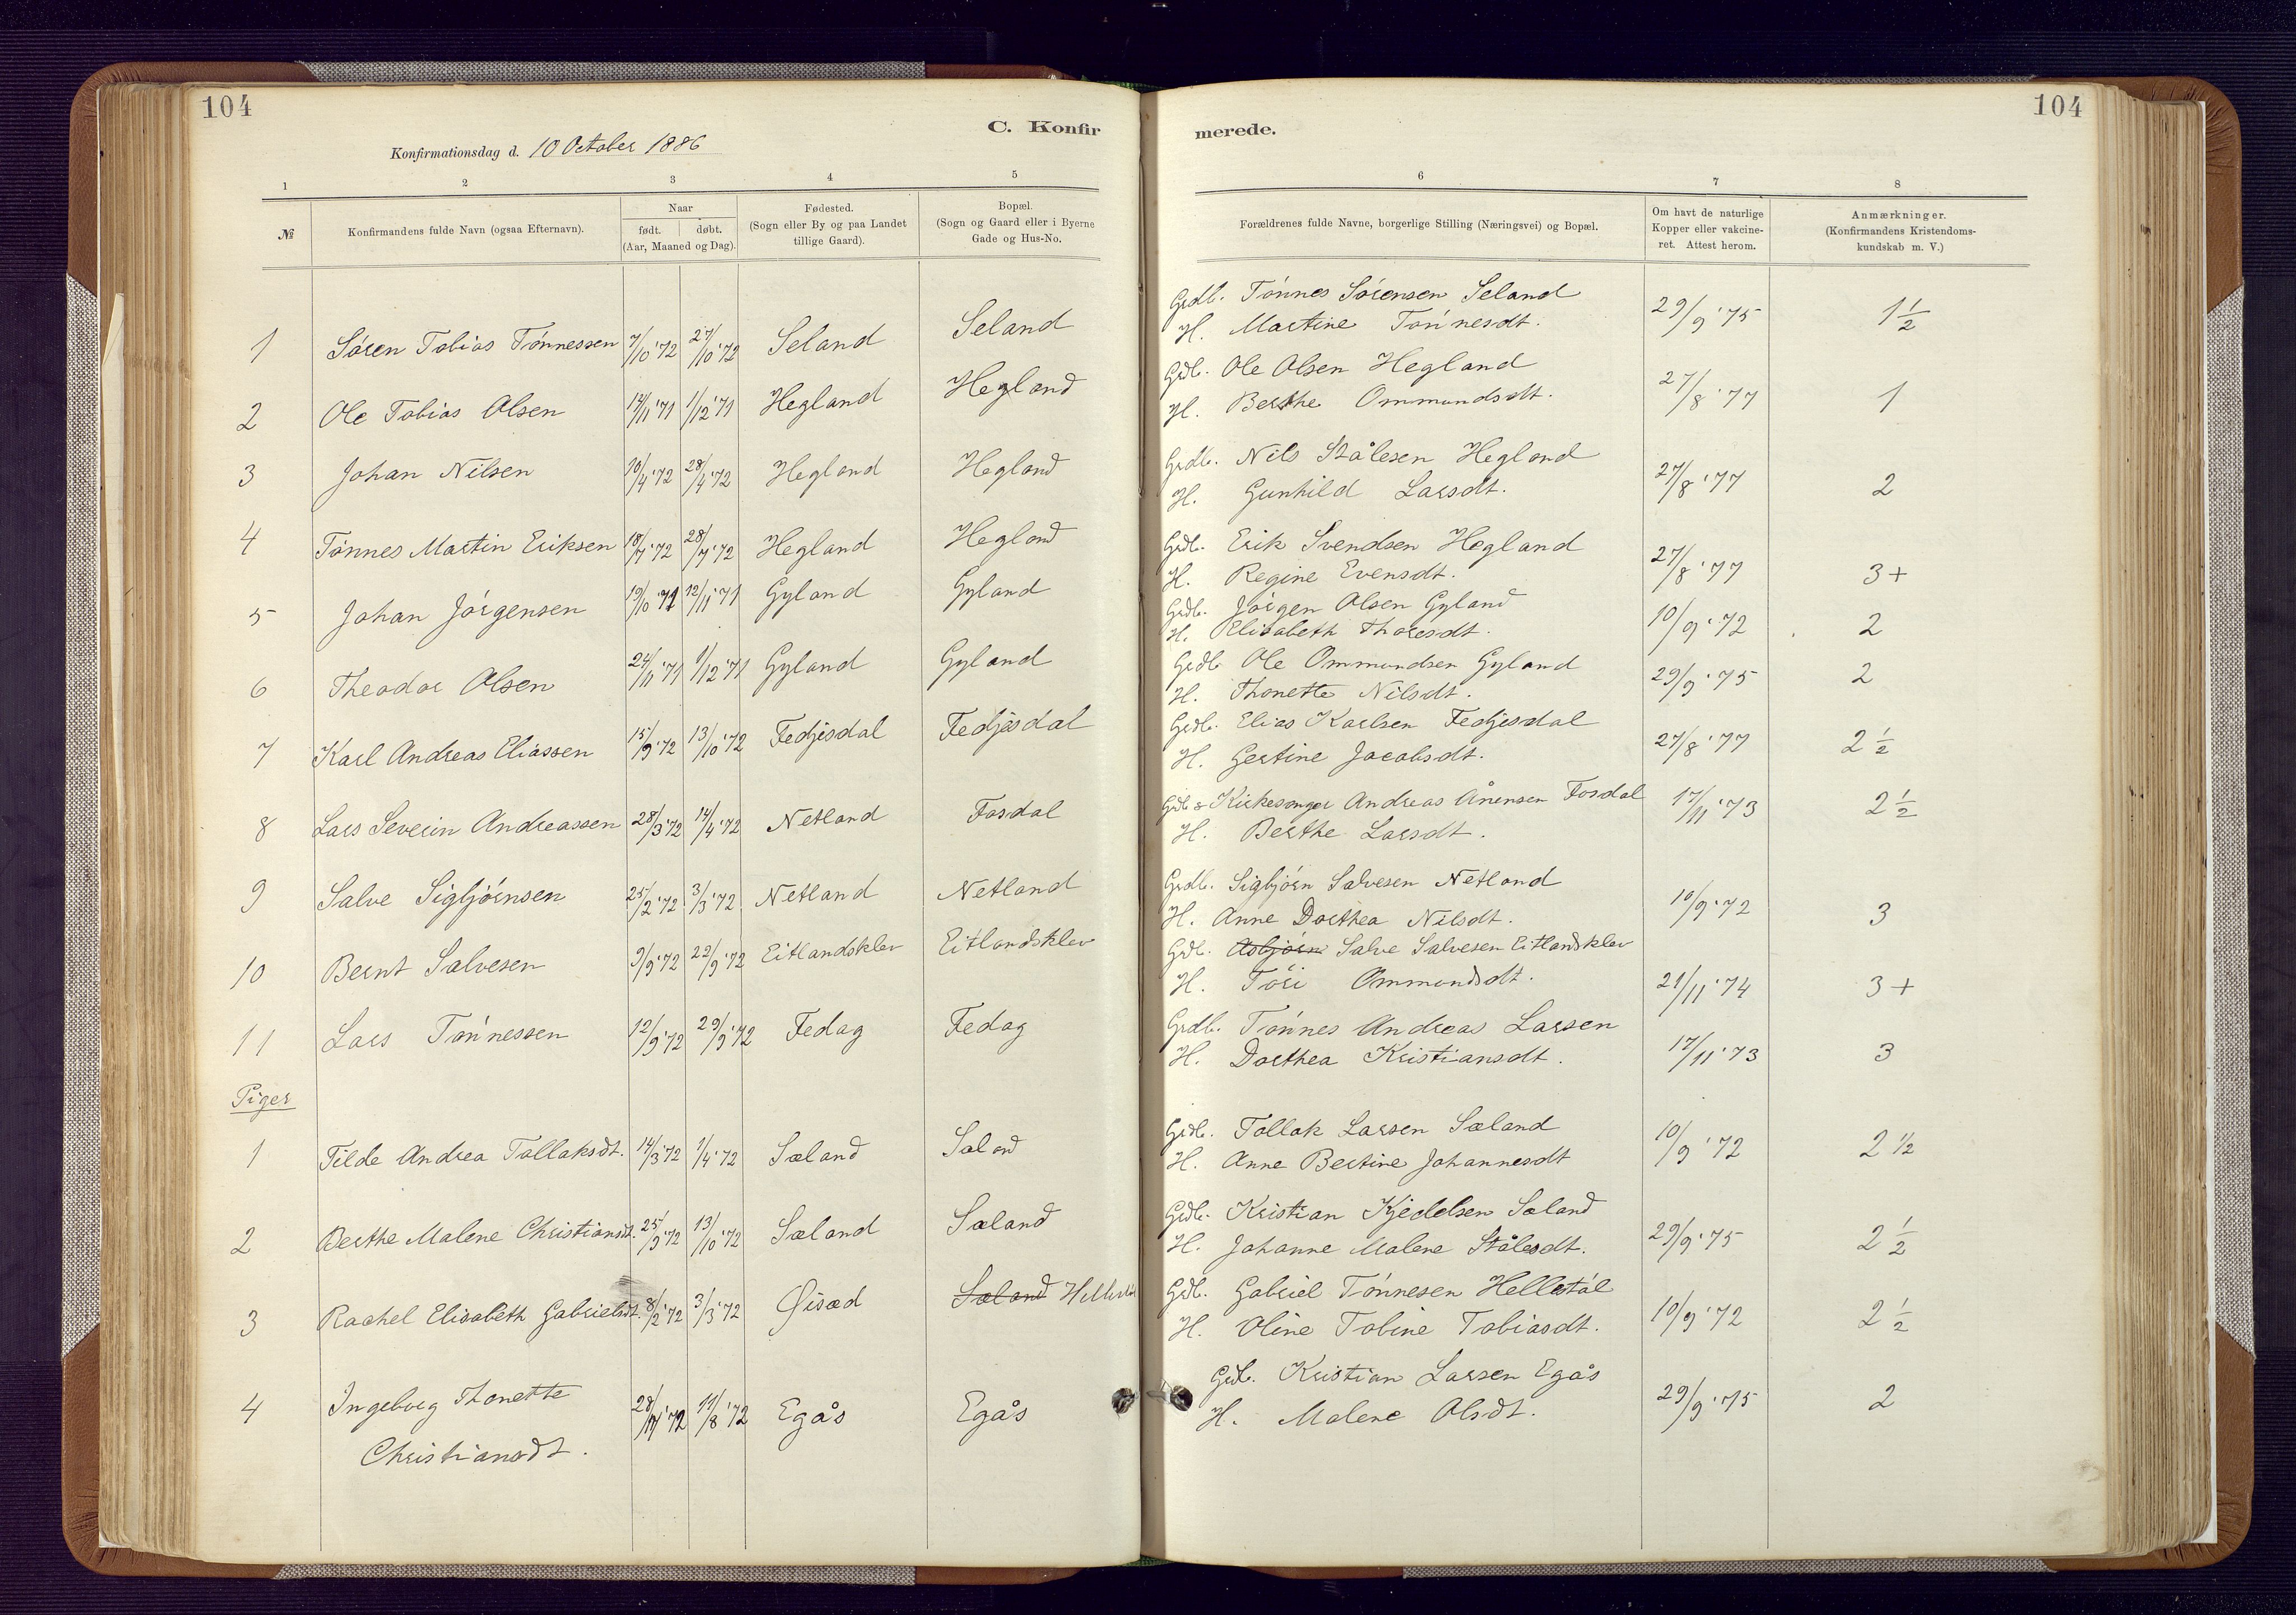 104
C. Konfirmerede.
104
Konfirmationsdag d. 10 October 1886
1 2 3 4 5 6 7 8
№
Konfirmandens fulde Navn (ogsaa Efternavn).
Naar
født. døbt.
(Aar, Maaned og Dag).
Fødested.
(Sogn eller By og paa Landet
tillige Gaard).
Bopæl.
(Sogn og Gaard eller i Byerne
Gade og Hus-No.
Forældrenes fulde Navne, borgerlige Stilling (Næringsvei) og Bopæl.
Om havt de naturlige
Kopper eller vakcine-
ret. Attest herom.
Anmærkninger.
(Konfirmandens Kristendoms-
kundskab m. V.)
1 Sören Tobias Tönnessen 7/10 '72 27/10 '72 Seland Seland Grdb. Tönnes Sörensen Seland 29/9 '75 1 1/2
H. Martine Tönnesdt.
2 Ole Tobias Olsen 14/11 '71 1/12 '71 Hegland Hegland Grdb. Ole Olsen Hegland 27/8 '77 1
H. Berthe Ommundsdt.
3 Johan Nilsen 10/4 '72 28/4 '72 Hegland Hegland Grdb. Nils Stålesen Hegland 27/8 '77 2
H. Gunhild Larsdt.
4 Tönnes Martin Eriksen 18/7 '72 28/7 '72 Hegland Hegland Grdb. Erik Svendsen Hegland 27/8 '77 3+
H. Regine Evensdt.
5 Johan Jörgensen 19/10 '71 12/11 '71 Gyland Gyland Grdb. Jörgen Olsen Gyland 10/9 '72 2
H. Elisabeth Thoresdt.
6 Theodor Olsen 24/11 '71 1/12 '71 Gyland Gyland Grdb Ole Ommundsen Gyland 29/9 '75 2
H. Thonette Nilsdt.
7 Karl Andreas Eliassen 15/9 '72 13/10 '72 Fedjesdal Fedjesdal Grdb. Elias Karlsen Fedjesdal 27/8 '77 2 1/2
H. Gertine Jacobsdt.
8 Lars Severin Andreassen 28/3 '72 14/4 '72 Netland Fosdal Grdb & Kirkesanger Andreas Ånensen Fosdal 17/11 '73 2 1/2
H. Berthe Larsdt.
9 Salve Sigbjörnsen 25/2 '72 3/3 '72 Netland Netland Grdb. Sigbjörn Salvesen Netland 10/9 '72 3
H. Anne Dorthea Nilsdt.
10 Bernt Salvesen 9/9 '72 22/9 '72 Eitlandsklev Eitlandsklev Grdb. Asbjörn Salve Salvesen Eitlandsklev 21/11 '74 3+
H. Töri Ommundsdt.
11 Lars Tönnessen 12/9 '72 29/9 '72 Fedog Fedog Grdb. Tönnes Andreas Larsen 17/11 '73 3
H. Dorthea Kristiansdt.
Piger
1 Tilde Andrea Tollaksdt. 14/3 '72 1/4 '72 Sæland Sælad Grdb. Tollak Larsen Sæland 10/9 '72 2 1/2
H. Anne Bertine Johannesdt
2 Berthe Malene Christiansdt. 25/9 '72 13/10 '72 Sæland Sæland Grdb. Kristian Kjedelsen Sæland 29/9 '75 2 1/2
H. Johanne Malene Stålesdt.
3 Rachel Elisabeth Gabrielsdt. 8/2 '72 3/3 '72 Øisæd Sæland Grdb. Gabriel Tönnesen Hellestöl 10/9 '72 2 1/2
H. Oline Tobine Tobiasdt.
4 IngebVeg Thonette 28/7 '72 11/8 '72 Egås Egås Grdb. Kristian Larsen Egås 29/9 '75 2
Christiansdt. H. Malene Olsdt.